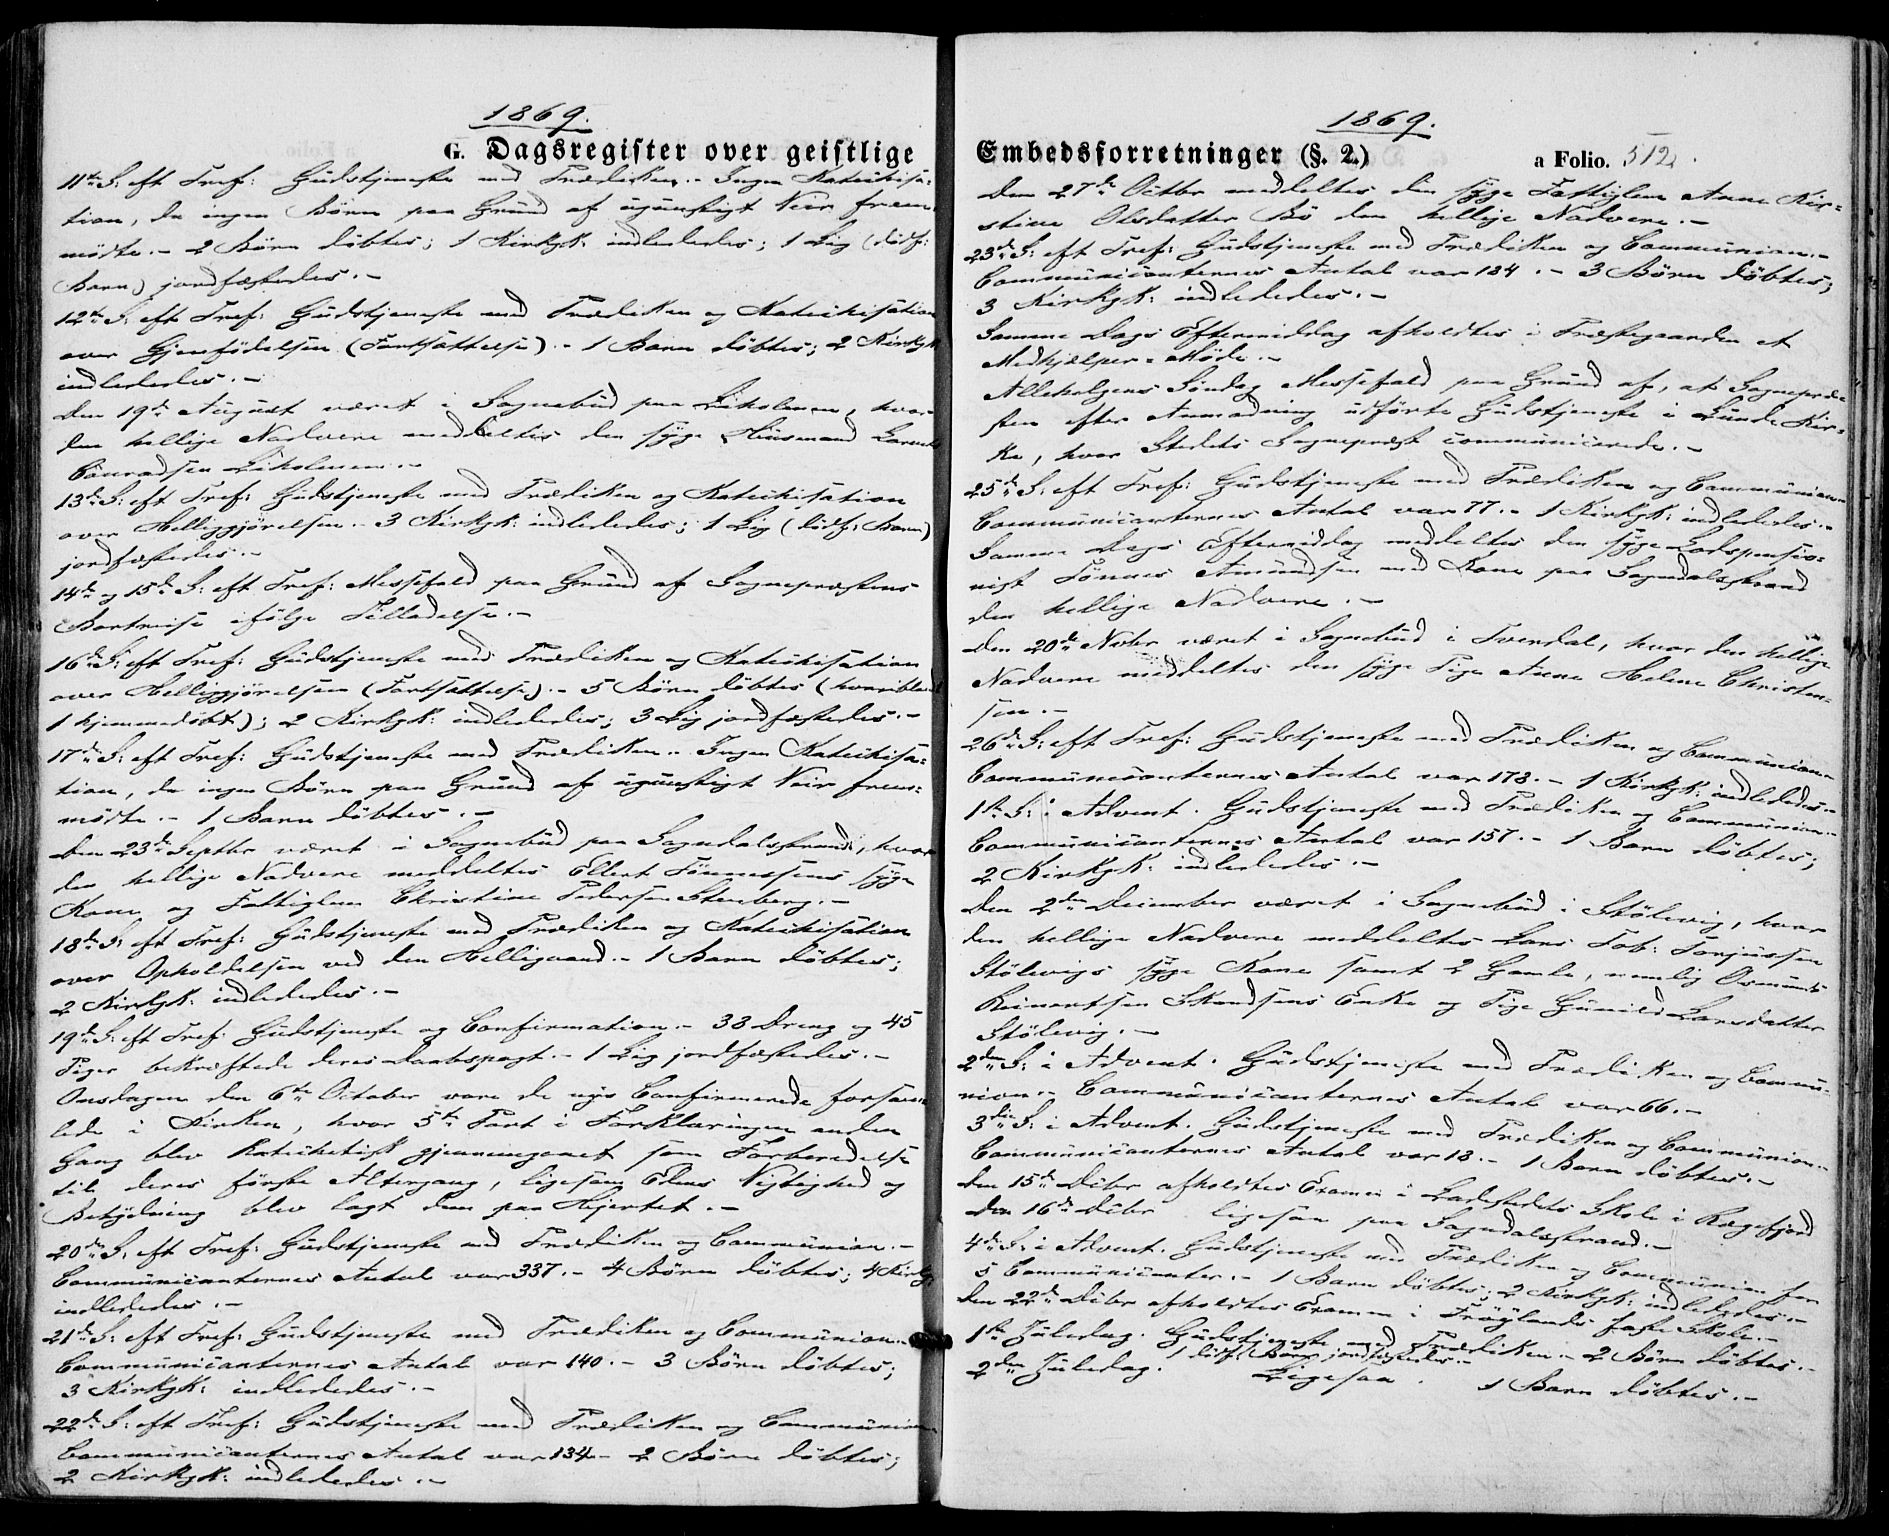 1869.
G. Dagsregister over geistlige
11te S: eft Tref: Gudstjeneste med Prædiken. - Ingen Katechisa-
tion, da ingen Børn paa Grund af ugunstigt Veir frem-
mødte. - 2 Børn døbtes; 1 Kirkgk: indlededes; 1 Lig (dødf:
Barn) jordfæstedes. -
12te S: eft Tref: Gudstjeneste med Prædiken og Katechisation
over Gjenfødelsen (Fortsættelse). - 1 Barn døbtes; 2 Kirkgk
indlededes. -
Den 19de August været i Sognebud paa Liholmen, hvor
den hellige Nadvere meddeltes den syge Huusmand
Conradsen Liholmen. -
13de S: eft Tref: Gudstjeneste med Prædiken og Katechisation
over Helliggjørelsen. - 3 Kirkgk: indlededes; 1 Lig (dødf: Barn)
jordfæstedes. -
14de og 15de S: eft Tref: Messefald paa Grund af Sognepræstens
Bortreise ifølge Tilladelse. -
16de S: eft Tref: Gudstjeneste med Prædiken og Katechisation
over Helliggjørelsen (Fortsættelse). - 5 Børn døbtes (hvoriblandt
1 hjemmedøbt); 2 Kirkgk: indlededes; 3 Lig jordfæstedes. -
17de S: eft Tref: Gudstjeneste med Prædiken. - Ingen Katechisa-
tion, da ingen Børn paa Grund af ugunstigt Veir frem-
mødte. - 1 Barn døbtes. -
Den 23de Septbr været i Sognebud paa Sogndalsstrand, hvor
den hellige Nadvere meddeltes Ellert Tønnessens syge
Kone og Fattiglem Christine Pedersen Stenberg. -
18de S: eft Tref: Gudstjeneste med Prædiken og Katechisation
over Opholdelsen ved den Helligaand. - 1 Barn døbtes;
2 Kirkgk: indlededes. -
19de S: eft Tref: Gudstjeneste og Confirmation. - 33 Dreng og 45
Piger bekræftede deres Daabspagt. - 1 Lig jordfæstedes. -
Onsdagen den 6te October vare de nys Confirmerede forsam-
lede i Kirken, hvor 5te Part i Forklaringen anden
Gang blev katechetisk gjennemgaaet som Forberedelse
til deres første Altergang, ligesom Edens Vigtighed og
Betydning blev lagt dem paa Hjertet. -
20de S: eft Tref: Gudstjeneste med Prædiken og Communion. -
Communicanternes Antal var 337. - 4 Børn døbtes; 4 Kirkg:
indlededes. -
21de S: eft Tref: Gudstjeneste med Prædiken og Communion. -
Communicanternes Antal var 140. - 3 Børn døbtes;
3 Kirkgk: indlededes. -
22de S: eft Tref: Gudstjeneste med Prædiken og Communion
Communicanternes Antal var 134 - 2 Børn døbtes;
2 Kirkgk: indlededes. -
1869.
Embedsforretninger (§. 2.) a Folio. 512.
Den 27de Octbr meddeltes den syge Fattiglem Anne Kir-
stine Olsdatter Bø den hellige Nadvere. -
23de S: eft Tref: Gudstjeneste med Prædiken og Communion. -
Communicanternes Antal var 184. - 3 Børn døbtes;
3 Kirkgk: indlededes. -
Samme Dags Eftermiddag afholdtes i Præstegaarden et
Medhjælper-Møde. -
Allehelgens Søndag Messefald paa Grund af, at Sognepræ-
sten efter Anmodning udførte Gudstjeneste i Lunde Kir-
ke, hvor Stedets Sognepræst communicerede. -
25de S: eft Tref: Gudstjeneste med Prædiken og Communion
Communicanternes Antal var 77. - 1 Kirkgk: indlededes. -
Samme Dags Eftermiddag meddeltes den syge Lodspensio-
nist Tønnes Amundsen med Kone paa Sogndalsstrand
den hellige Nadvere. -
Den 20de Novbr været i Sognebud i Tvendal, hvor den hellige
Nadvere meddeltes den syge Pige Anne Helene Christen-
sen. -
26de S: eft Tref: Gudstjeneste med Prædiken og Communion -
Communicanternes Antal var 178. - 1 Kirkgk: indlededes. -
1ste S: i Advent. Gudstjeneste med Prædiken og Communion. -
Communicanternes Antal var 157. - 1 Barn døbtes;
2 Kirkgk: indlededes. -
Den 2den December været i Sognebud i Stølevig, hvor
den hellige Nadvere meddeltes Lars Tob: Torjussen
Stølevigs syge Kone samt 2 Gamle, nemlig Osmund
Reinertsen Skandsens Enke og Pige Gunild Larsdatter
Stølevig. -
2den S: i Advent. Gudstjeneste med Prædiken og Commu-
nion. - Communicanternes Antal var 66. -
3die S: i Advent. Gudstjeneste med Prædiken og Communion. -
Communicanternes Antal var 18. - 1 Barn døbtes. -
Den 15de Dcbr afholdtes Examen i Ladestedets Skole i Rægefjord
Den 16de Dcbr ligesaa paa Sogndalsstrand. -
4de S: i Advent. Gudstjeneste med Prædiken og Communion for
5 Communicanter. - 1 Barn døbtes; 2 Kirkgk: indlededes. -
Den 22de Dcbr afholdtes Examen i Frøylands faste Skole. -
1ste Juledag. Gudstjeneste med Prædiken. - 2 Børn døbtes. -
1 dødf: Barn jordfæstedes. -
2den Juledag. Ligesaa. 1 Barn døbtes. -